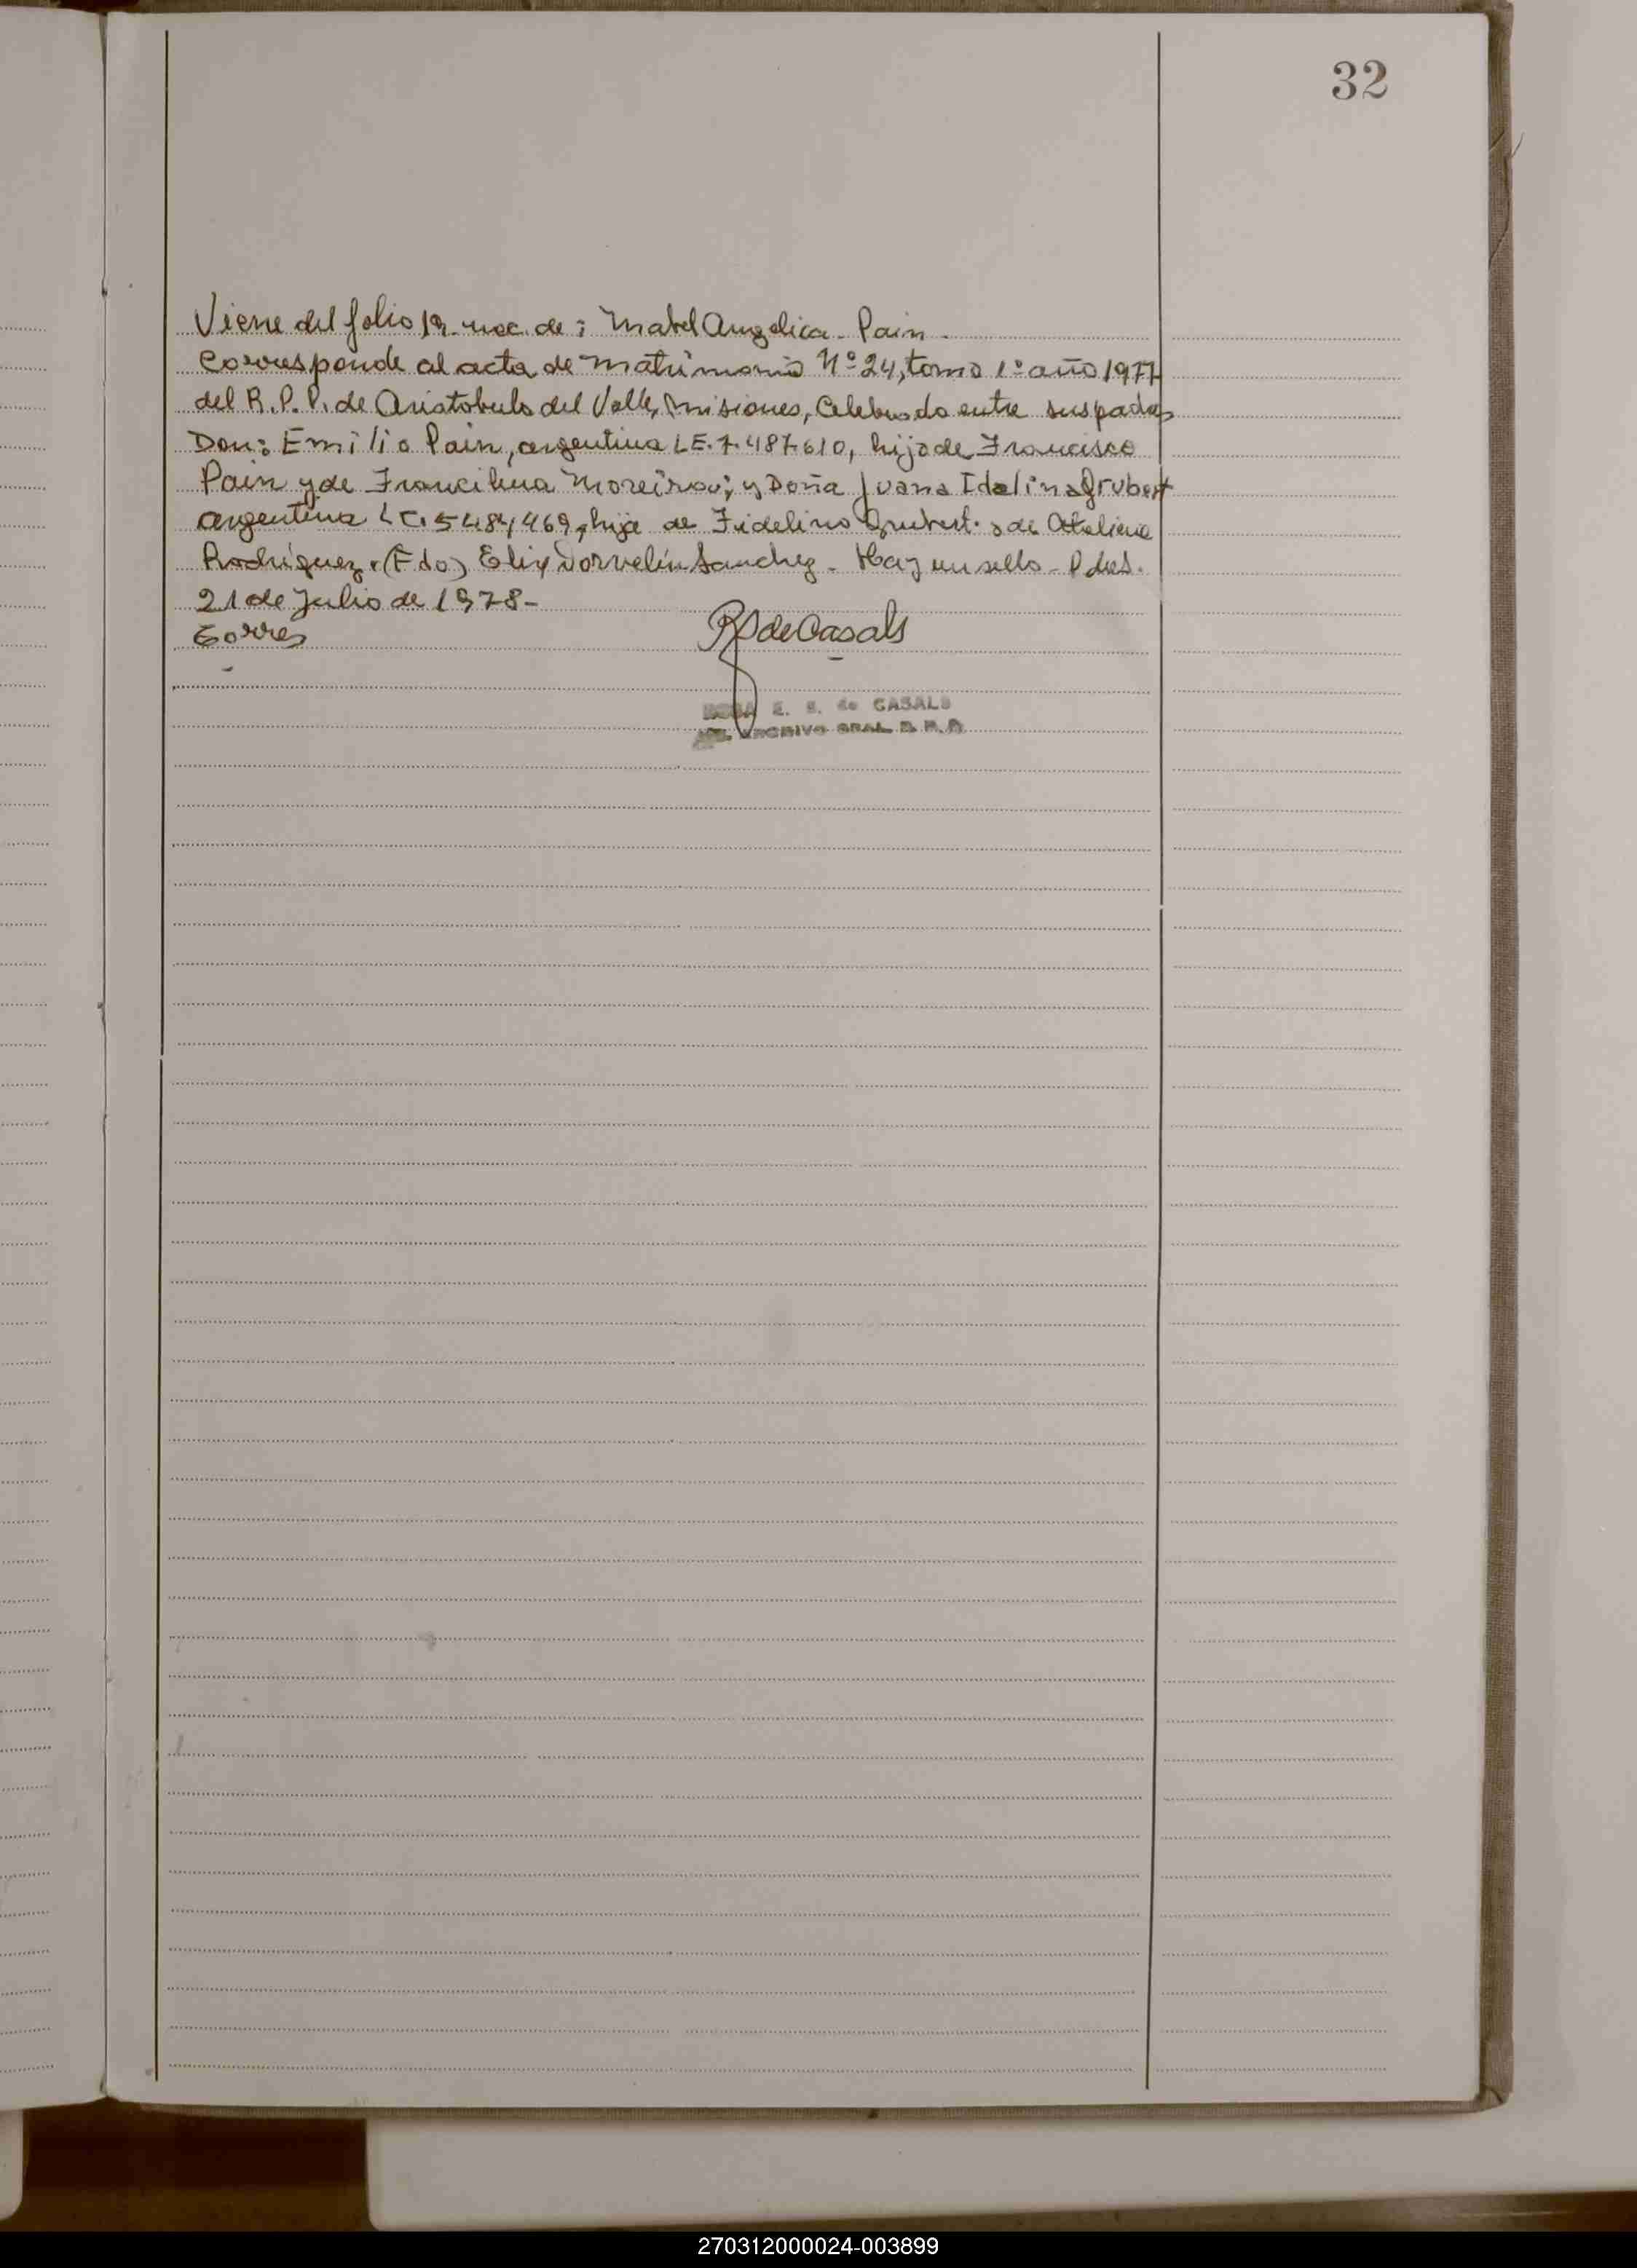 32
Viene del folio 19 nac. de: Mabel Angelica Pain
Corresponde al acta de matrimonio Nº 24, tomo 1º año 1977
del R.P.P. de Aristobulo del Valle, Misiones, Celebrado entre sus padres
Don: Emilio Pain, argentino LE. 7.487.610, hijo de Francisco
Pain y de Moreira; y Doña Juana Idalina Grubert
argentina LC. 5.484.469, hija de Fidelino Grubert y de
Rodriguez. (Fdo) Elix Dorvelín Sanchez. Hay un sello - Pdas.
21 de Julio de 1978-
Torres
R S de Casals
ROSA E. S. de CASALS
ARCHIVO GRAL. R. P. P.
270312000024-003899